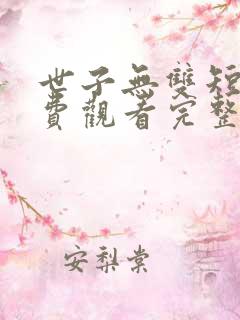 世子無雙短
費觀看完整
安梨棠